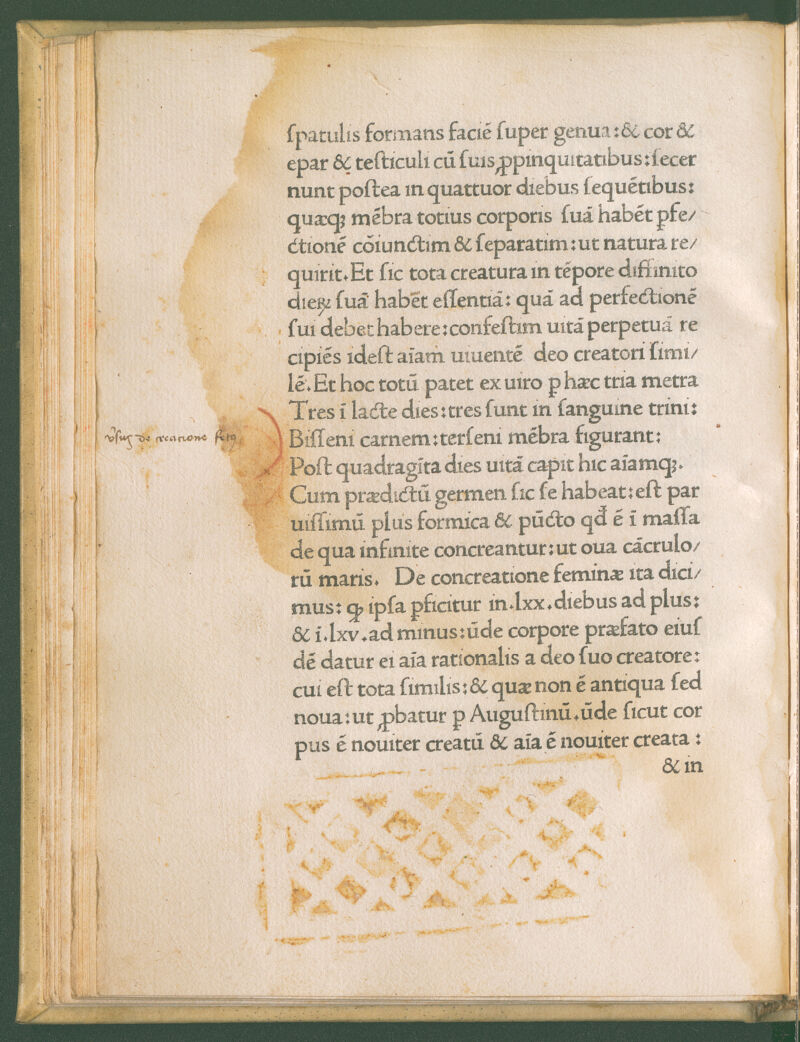 ſpatulis formans facié ſuper genua:& cor &
epar & teſticuli cū ſuis ꝓpinquitatibus:ſecer
nunt poſtea in quattuor diebus ſequētibus:
quæqꝫ mēbra totius corporis ſuā habēt pfe/
ctionē cōiunctim & ſeparatim:ut natura re/
quirit.Et ſic tota creatura in tēpore diffinito
dieꝝ ſuā habēt eſſentiā: quā ad perfectionē
ſui debet habere:confeſtim uitā perpetuā re
cipiēs ideſt aīam uiuentē deo creatori ſimi/
lē.Et hoc totū patet ex uiro p hæc tria metra
Tres ī lacte dies:tres ſunt in ſanguine trini:
Biſſeni carnem:terſeni mēbra figurant:
Poſt quadragīta dies uitā capit hic aīamqꝫ.
Cum prædictū germen ſic ſe habeat:eſt par
uiſſimū plus formica & pūcto qđ ē ī maſſa
de qua infinite concreantur:ut oua cācrulo/
rū maris. De concreatione feminæ ita dici/
mus: ꝙ ipſa pficitur in.lxx.diebus ad plus:
& ī.lxv.ad minus:ūde corpore præfato eiuſ
dē datur ei aīa rationalis a deo ſuo creatore:
cui eſt tota ſimilis:& quæ non ē antiqua ſed
noua:ut ꝓbatur p Auguſtinū.ūde ſicut cor
pus ē nouiter creatū & aīa ē nouiter creata :
& in
v̄ſus de creatione